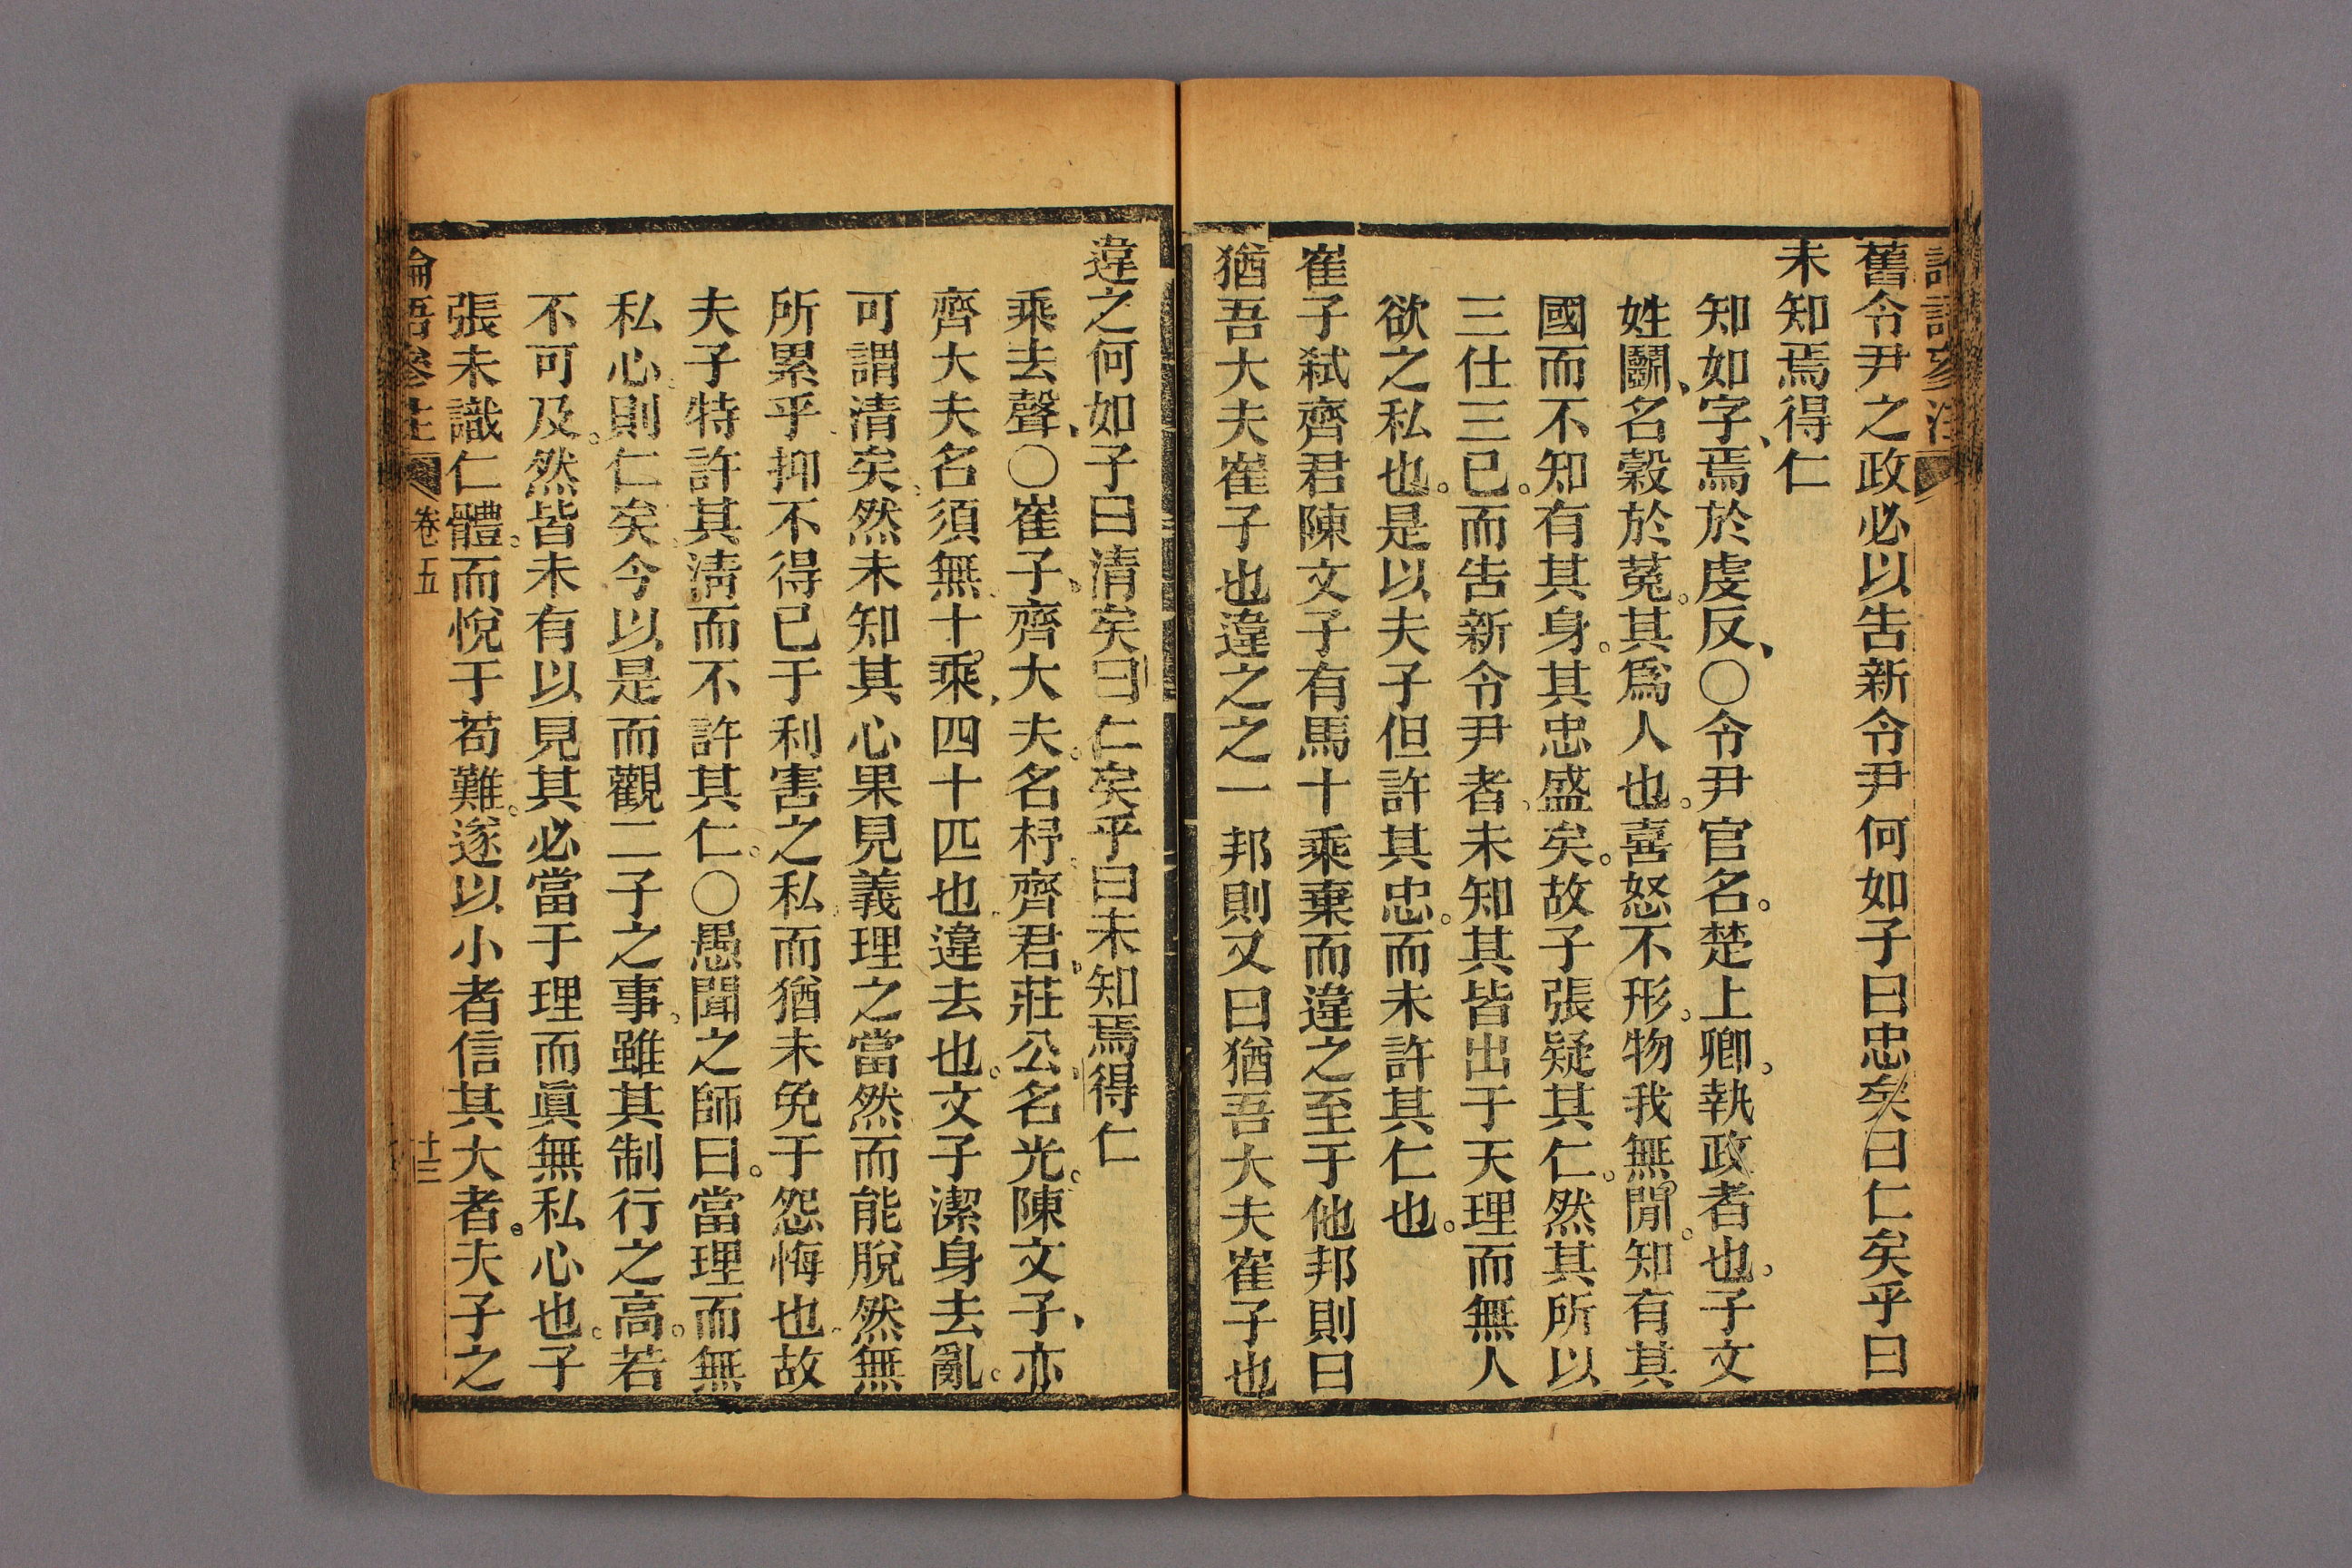 舊令尹之政必以告新令尹何如子曰忠矣曰仁矣乎曰
未知焉得仁
知如字、焉於虔反、○令尹官名。楚上卿。執政者也。子文
姓鬭、名穀於菟。其爲人也。喜怒不形。物我無閒。知有其
國而不知有其身。其忠盛矣。故子張疑其仁。然其所以
三仕三已。而告新令尹者。未知其皆出于天理而無人
欲之私也。是以夫子但許其忠。而未許其仁也。
崔子弑齊君陳文子有馬十乘棄而違之至于他邦則曰
猶吾大夫崔子也違之之一邦則又曰猶吾大夫崔子也
違之何如子曰清矣曰仁矣乎曰未知焉得仁
乘去聲、○崔子、齊大夫。名杼。齊君、莊公。名光。陳文子、亦
齊大夫名須無。十乘、四十匹也。違去也。文子潔身去亂。
可謂清矣。然未知其心果見義理之當然而能脫然無
所累乎。抑不得已于利害之私。而猶未免于怨悔也。故
夫子特許其清而不許其仁。○愚聞之師曰。當理而無
私心。則仁矣。今以是而觀二子之事。雖其制行之高。若
不可及。然皆未有以見其必當于理而眞無私心也。子
張未識仁體。而悅于苟難。遂以小者信其大者。夫子之
論語參註 卷五 十三